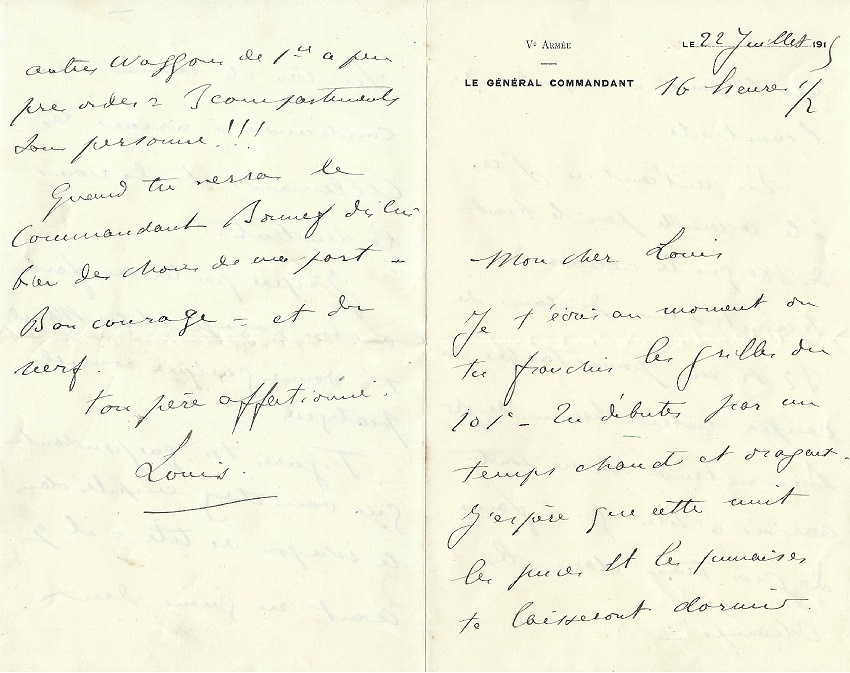 Vᵉ Armée
LE 22 Juillet 1915
LE GÉNÉRAL COMMANDANT
16 heures 1/2
Mon cher Louis
Je t'écris au moment où
tu franchis les grilles du
101ᵉ - Tu débutes par un
temps chaud et orageux -
J'espère que cette nuit
les puces et les punaises
te laisseront dormir.
autres waggons de 1ʳᵉ a peu
pres vides = 3 compartiments
sans personne!!!
Quand tu verras le
Commandant dis lui
bien des choses de ma part -
Bon courage = et du
nerf.
ton père affectionné.
Louis.